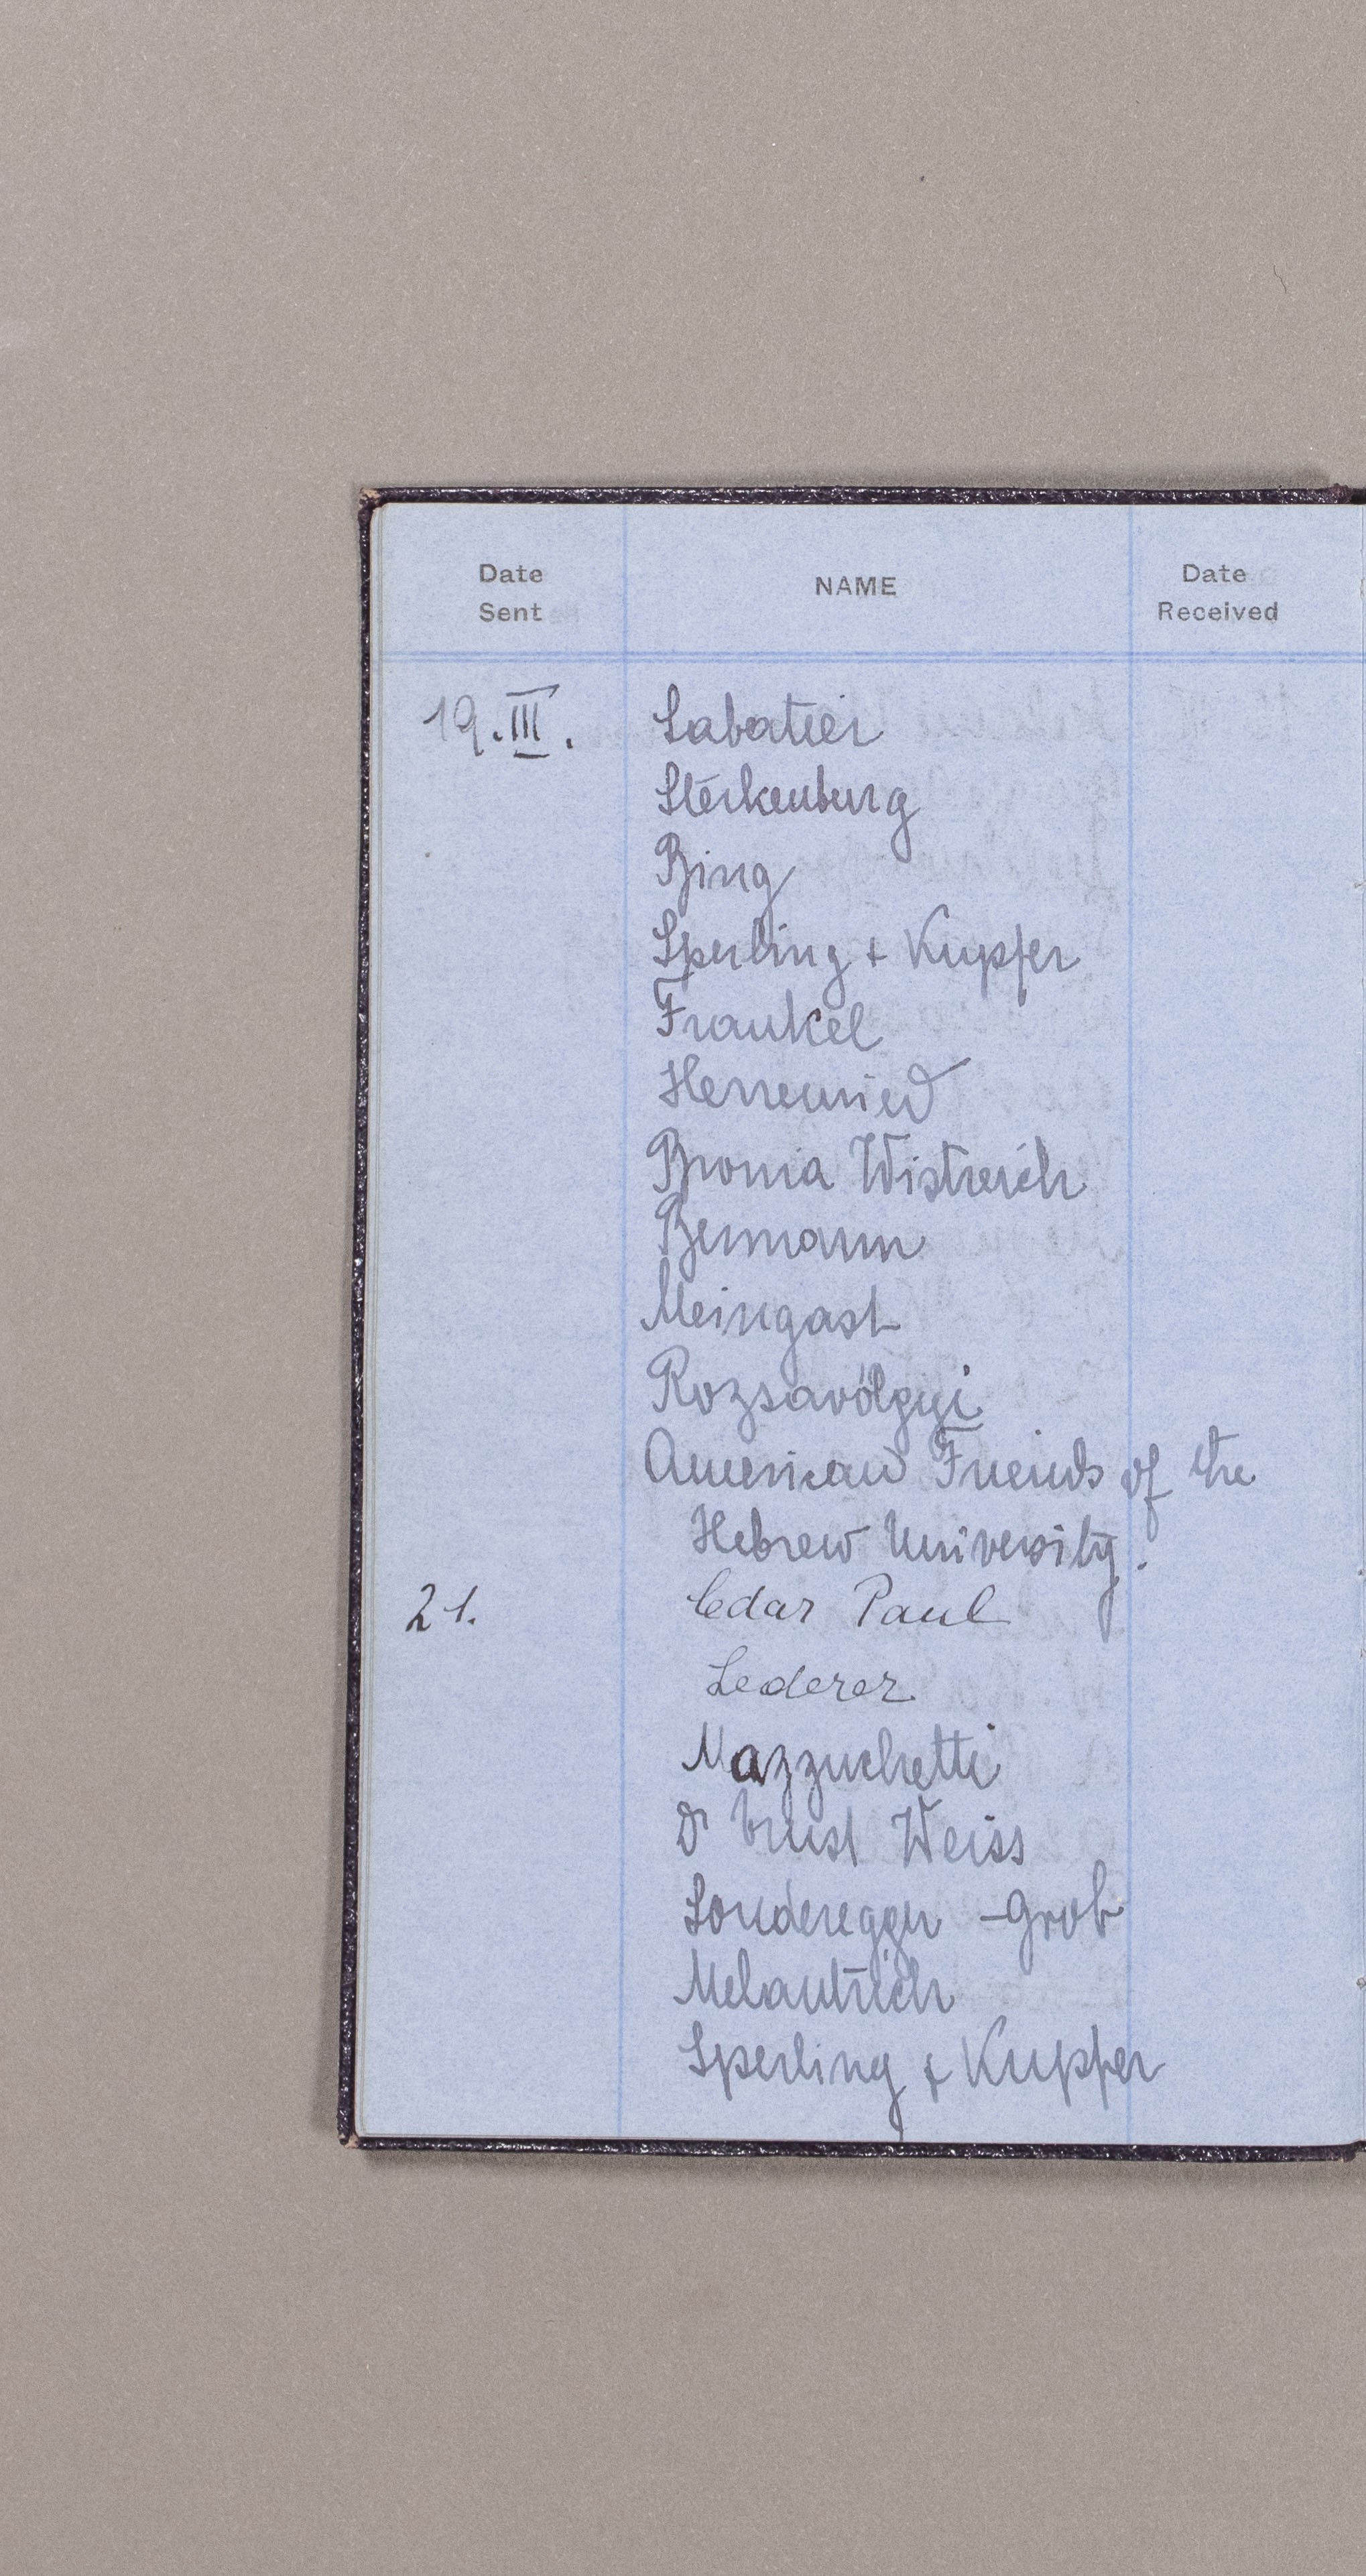 Date Sent NAME Date Received
19.III. Sabatier
Sterkenburg
Bing
Sperling + Kupfer
Frankel
Herrenried
Bronia Wistreich
Bermann
Meingast
Rozsavölgyi
American Friends of the
Hebrew University.
21. Cedar Paul
Lederer
Mazzuchetti
Dr Ernst Weiss
Sonderegger - Grob
Melantrich
Sperling & Kupfer